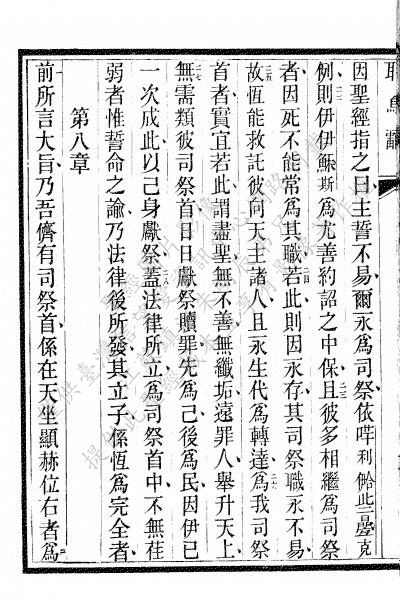 因聖經指之曰主誓不易爾永為司祭依咩利帢此三學克
例則伊伊穌斯為尤善約詔之中保且彼多相繼為司祭
者因死不能常為其職若此則因永存其司祭職永不易
故恆能救託彼向天主諸人且永生代為轉達為我司祭
首者實宜若此謂盡聖無不善無纖垢遠罪人舉升天上
無需類彼司祭首日日獻祭贖罪先為己後為民因伊已
一次成此以己身獻祭蓋法律所立為司祭首中不無荏
弱者惟誓命之諭乃法律後所發其立子係恆為完全者
第八章
前所言大旨乃吾儕有司祭首係在天坐顯赫位右者為